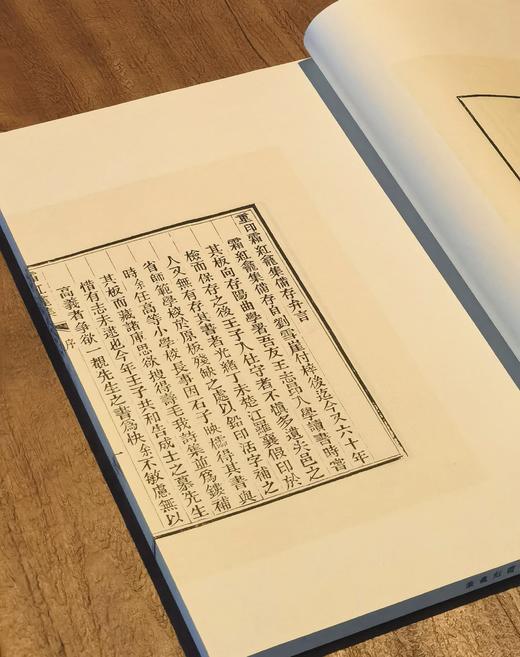 重印霜紅龕集備存弁言
霜紅龕集備存自劉雪崖付梓後迄今又六十年
其板向存陽曲學署吾友王志昂入學讀書時嘗
檢而保存之後王子入仕守者不愼多遺失邑之
人又無有存其書者光緒丁未楚江羅襄假印於
省師範學校於原板殘缺之處以鉛印活字補之
時余任高等小學校長事因石子映櫺得其書與
其板而藏諸庫思欲搜得壽毛我詩集並爲鏤補
惜有志未逮也今年王子共和告成士之慕先生
高義者爭欲一覩先生之書爲快余不敏慮無以
霜紅龕集 序 一
霜紅龕集